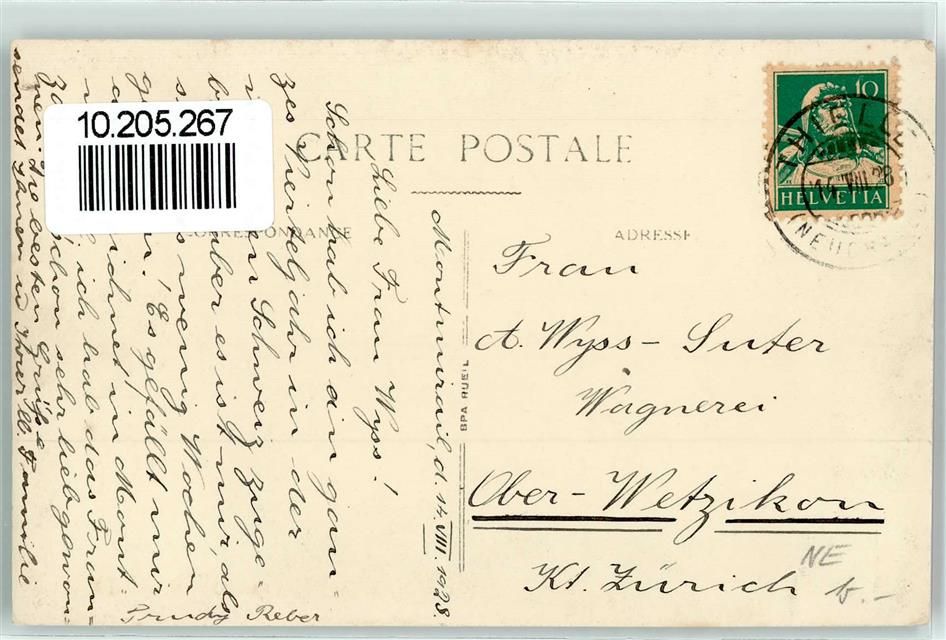 10.205.267
CARTE POSTALE
CORRESPONDANCE
ADRESSE
10
HELVETIA
THIELLE
14.VIII.28
(NEUCH
BPA RUEIL
Montmirail, d. 14. VIII. 1928.
Liebe Frau Wyss!
Schon hab ich ein gan-
zes Vierteljahr in der
Schweiz zuge-
aber es ist mir, als
wenig Wochen
Es gefällt mir
in Mont-
ich hab das Fräu-
schon sehr liebgewon-
nen. Die besten Grüsse
sendet Ihnen u. Ihrer lb. Familie
Trudy Reber
Frau
A. Wyss-Suter
Wagnerei
Ober-Wetzikon
Kt. Zürich
NE